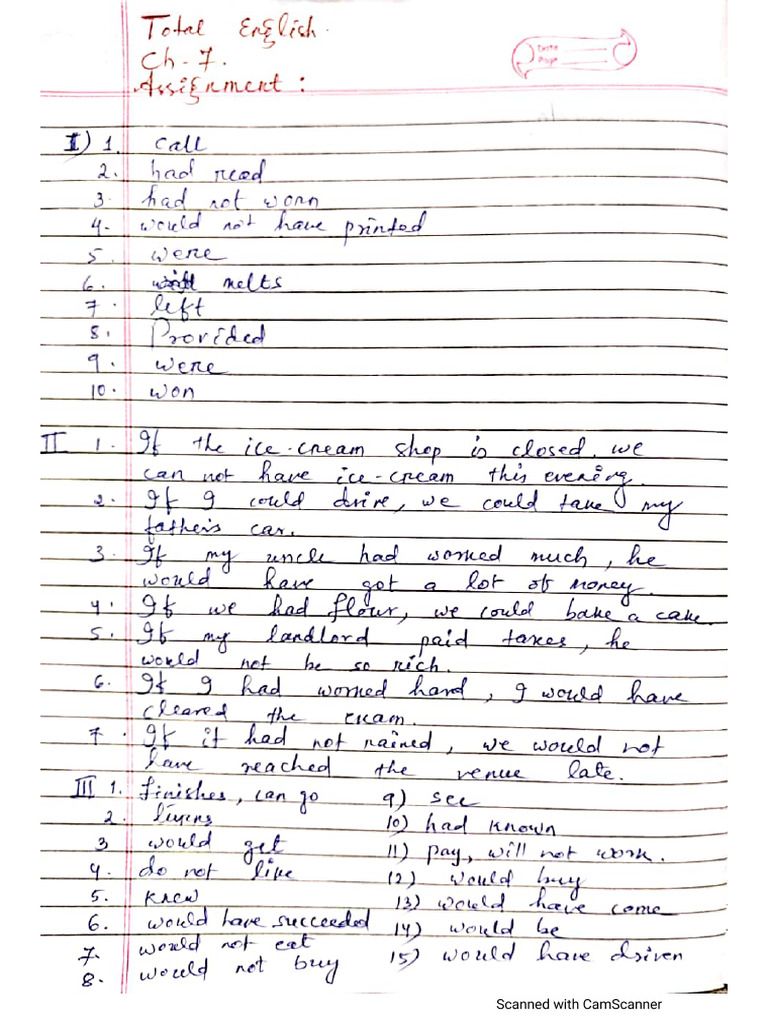 Total English.
Ch - 7.
Assignment :
Date
Page
I) 1. Call
2. had read
3. had not worn
4. would not have printed
5. were
6. melts
7. left
8. Provided
9. were
10. won
II 1. If the ice-cream shop is closed, we
can not have ice-cream this evening.
2. If I could drive, we could take my
father's car.
3. If my uncle had worked much, he
would have got a lot of money.
4. If we had flour, we could bake a cake.
5. If my landlord paid taxes, he
would not be so rich.
6. If I had worked hard, I would have
cleared the exam.
7. If it had not rained, we would not
have reached the venue late.
III 1. finishes, can go
2.
3 would get
4. do not live
5. knew
6. would have succeeded
7. would not eat
8. would not buy
9) see
10) had known
11) pay, will not work.
12) would buy
13) would have come
14) would be
15) would have driven
Scanned with CamScanner